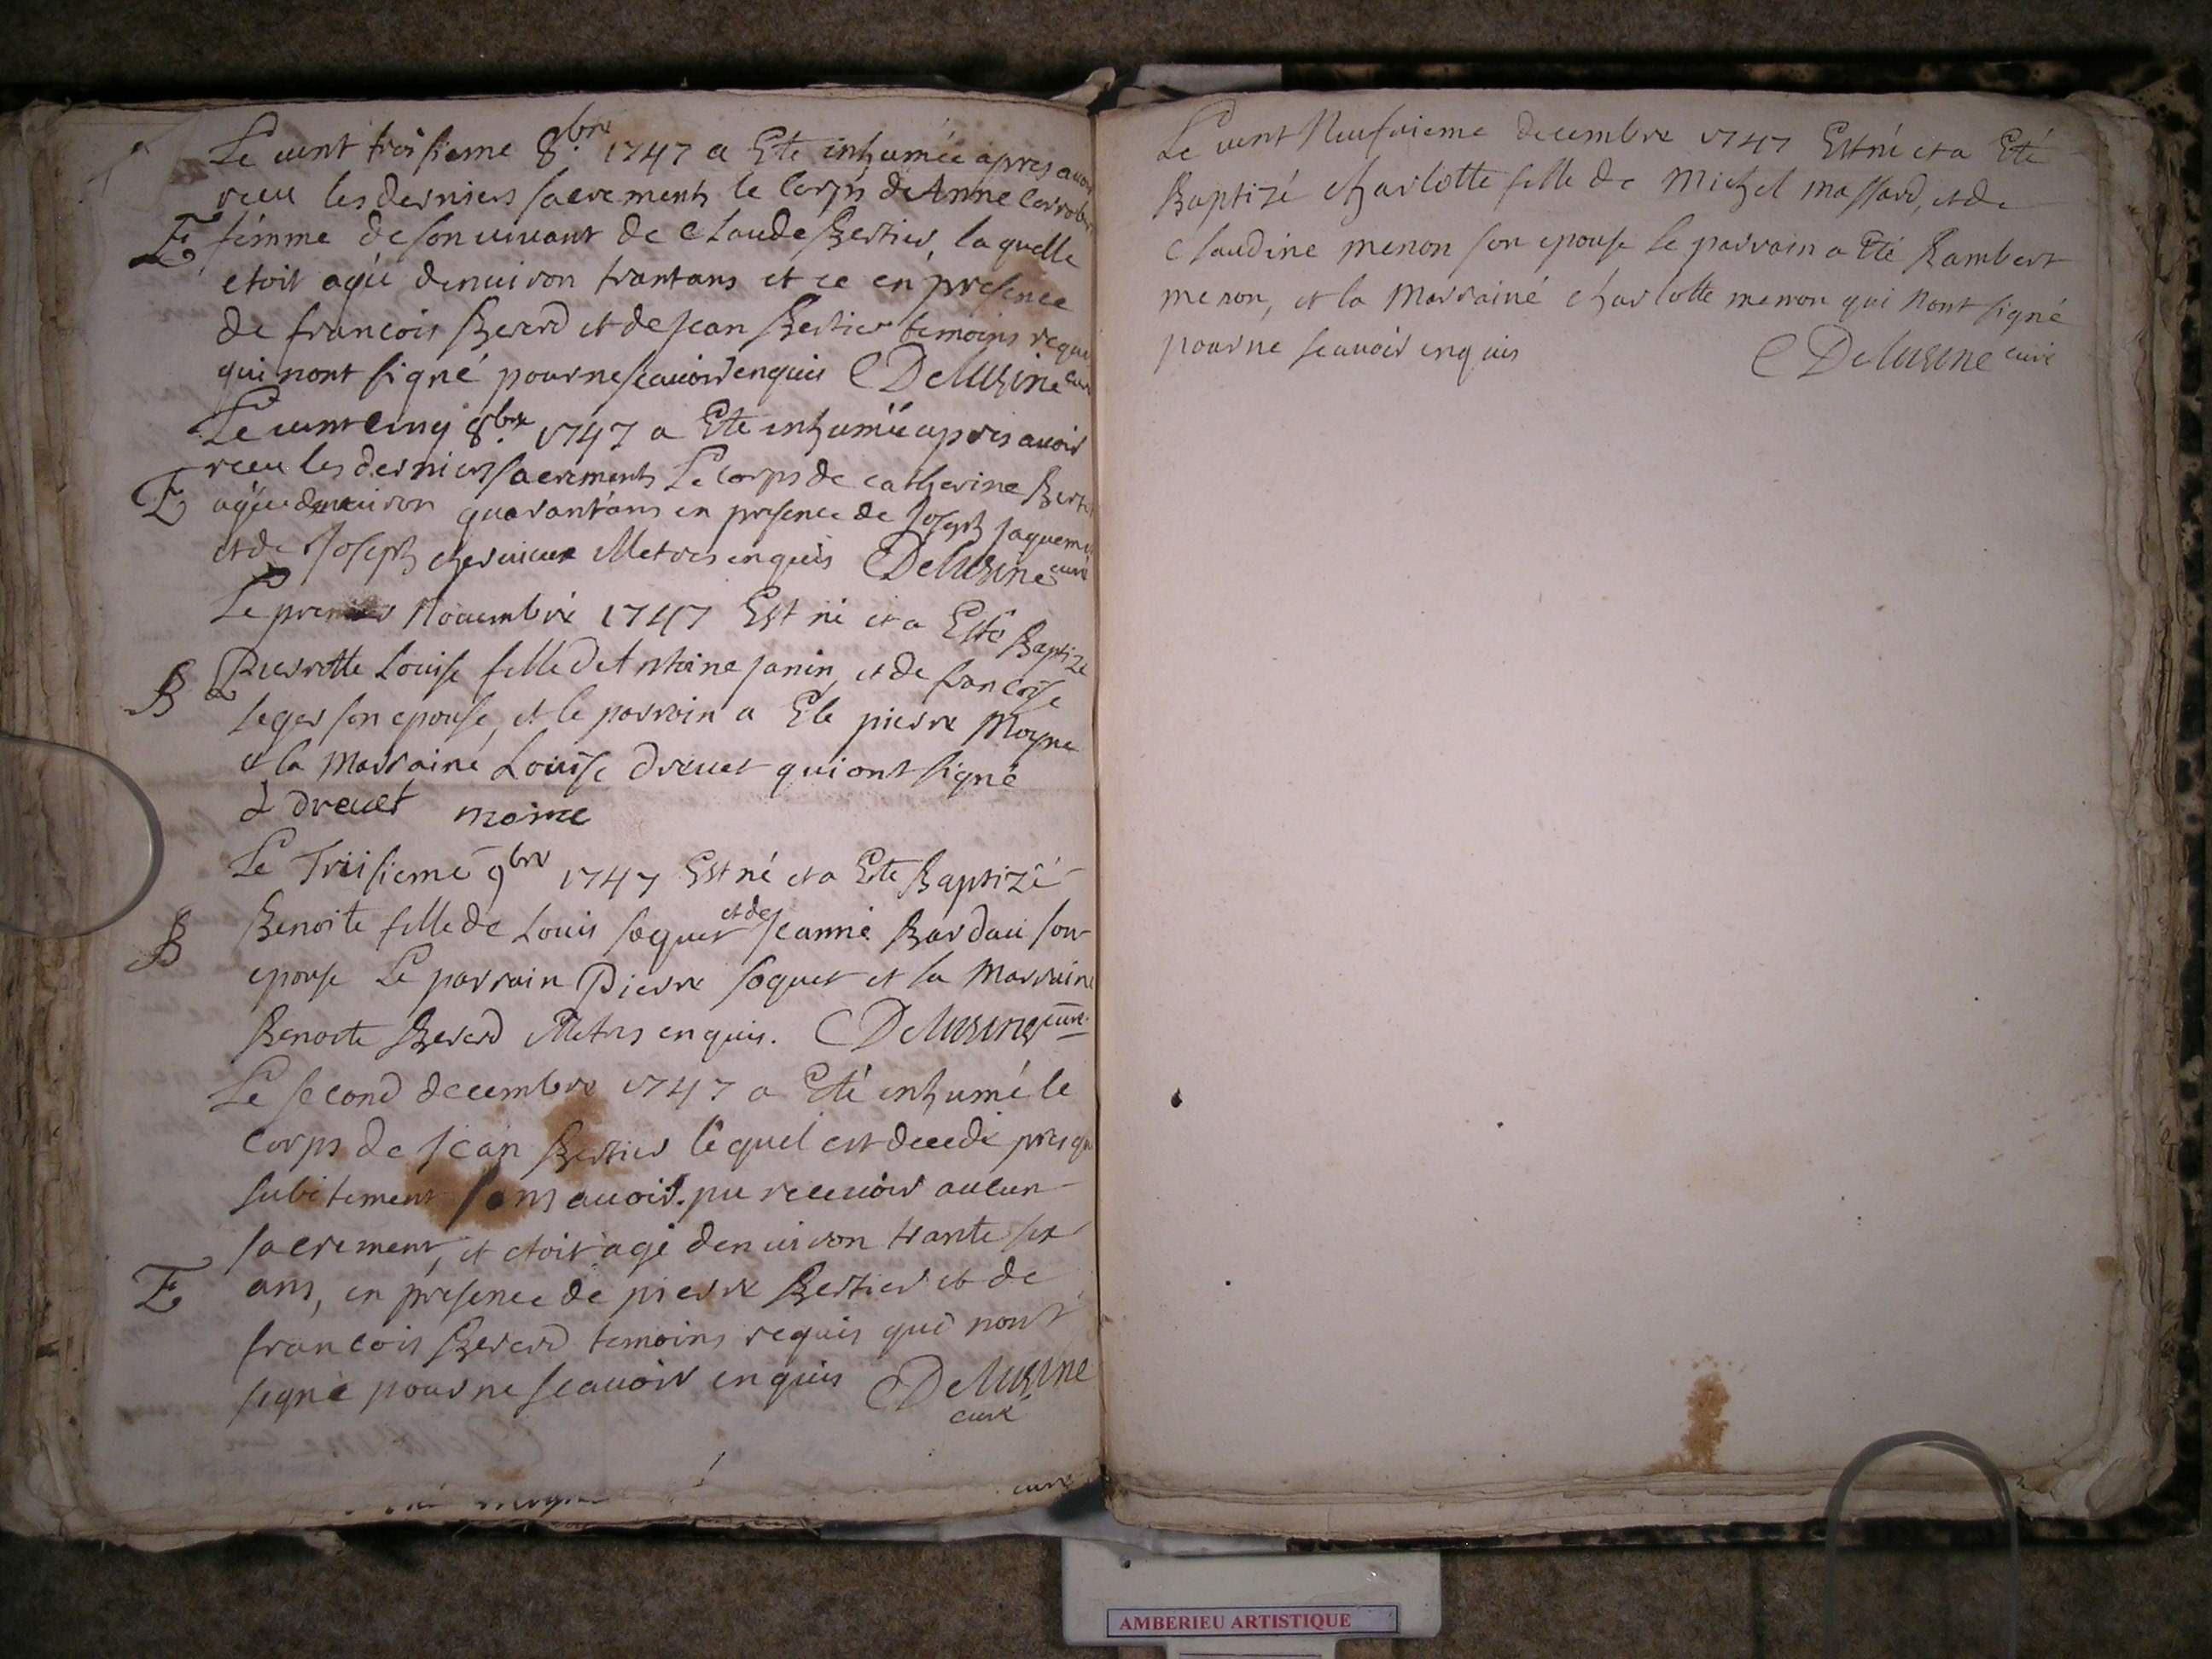 Le vint troisieme 8.bre 1747 a Ete inhumée apres avoir
receu les derniers sacrements le corps de Anne
E femme de son vivant de Claude Bertier, laquelle
etoit agée denviron trantans et ce en presence
de francois Berard et de Jean Bertier temoins requis
qui nont signé pour ne scavoir enquis Delusine curé
Le vint cinq 8.bre 1747 a Ete inhumée apres avoir
receu les derniers sacrements Le corps de catherine
E agée denviron quarantans en presence de Joseph
et de Joseph illetrés enquis Delusine curé
Le premier Novembre 1747 Est né et a Esté Baptizé
B Pierrotte Louise fille dAntoine janin, et de francoise
leger son epouse, et le parrain a Ete pierre Moyne
et la Marraine Louise drevet qui ont signé
L drevet moine
Le Troisieme 9bre 1747 Est né et a Ete Baptizé
B Benoite fille de Louis soquet et de Jeanne son
epouse Le parrain Pierre soquet et la Marraine
Benoite Berard illetrés enquis. Delusine curé
Le second decembre 1747 a Eté inhumé le
corps de Jean Bertier lequel est decedé presque
subitement sans avoir pu recevoir aucun
sacrement, et etoit agé denviron trante six
E ans, en presence de pierre Bertier et de
francois Berard temoins requis qui nont
signé pour ne scavoir enquis Delusine
curé
curé
Le vint Neufvieme decembre 1747 Est né et a Eté
Baptizé charlotte fille de Michel massard, et de
Claudine menon son epouse le parrain a Eté Rambert
menon, et la Marrainé charlotte menon qui nont signé
pour ne scavoir enquis Delusine curé
AMBERIEU ARTISTIQUE